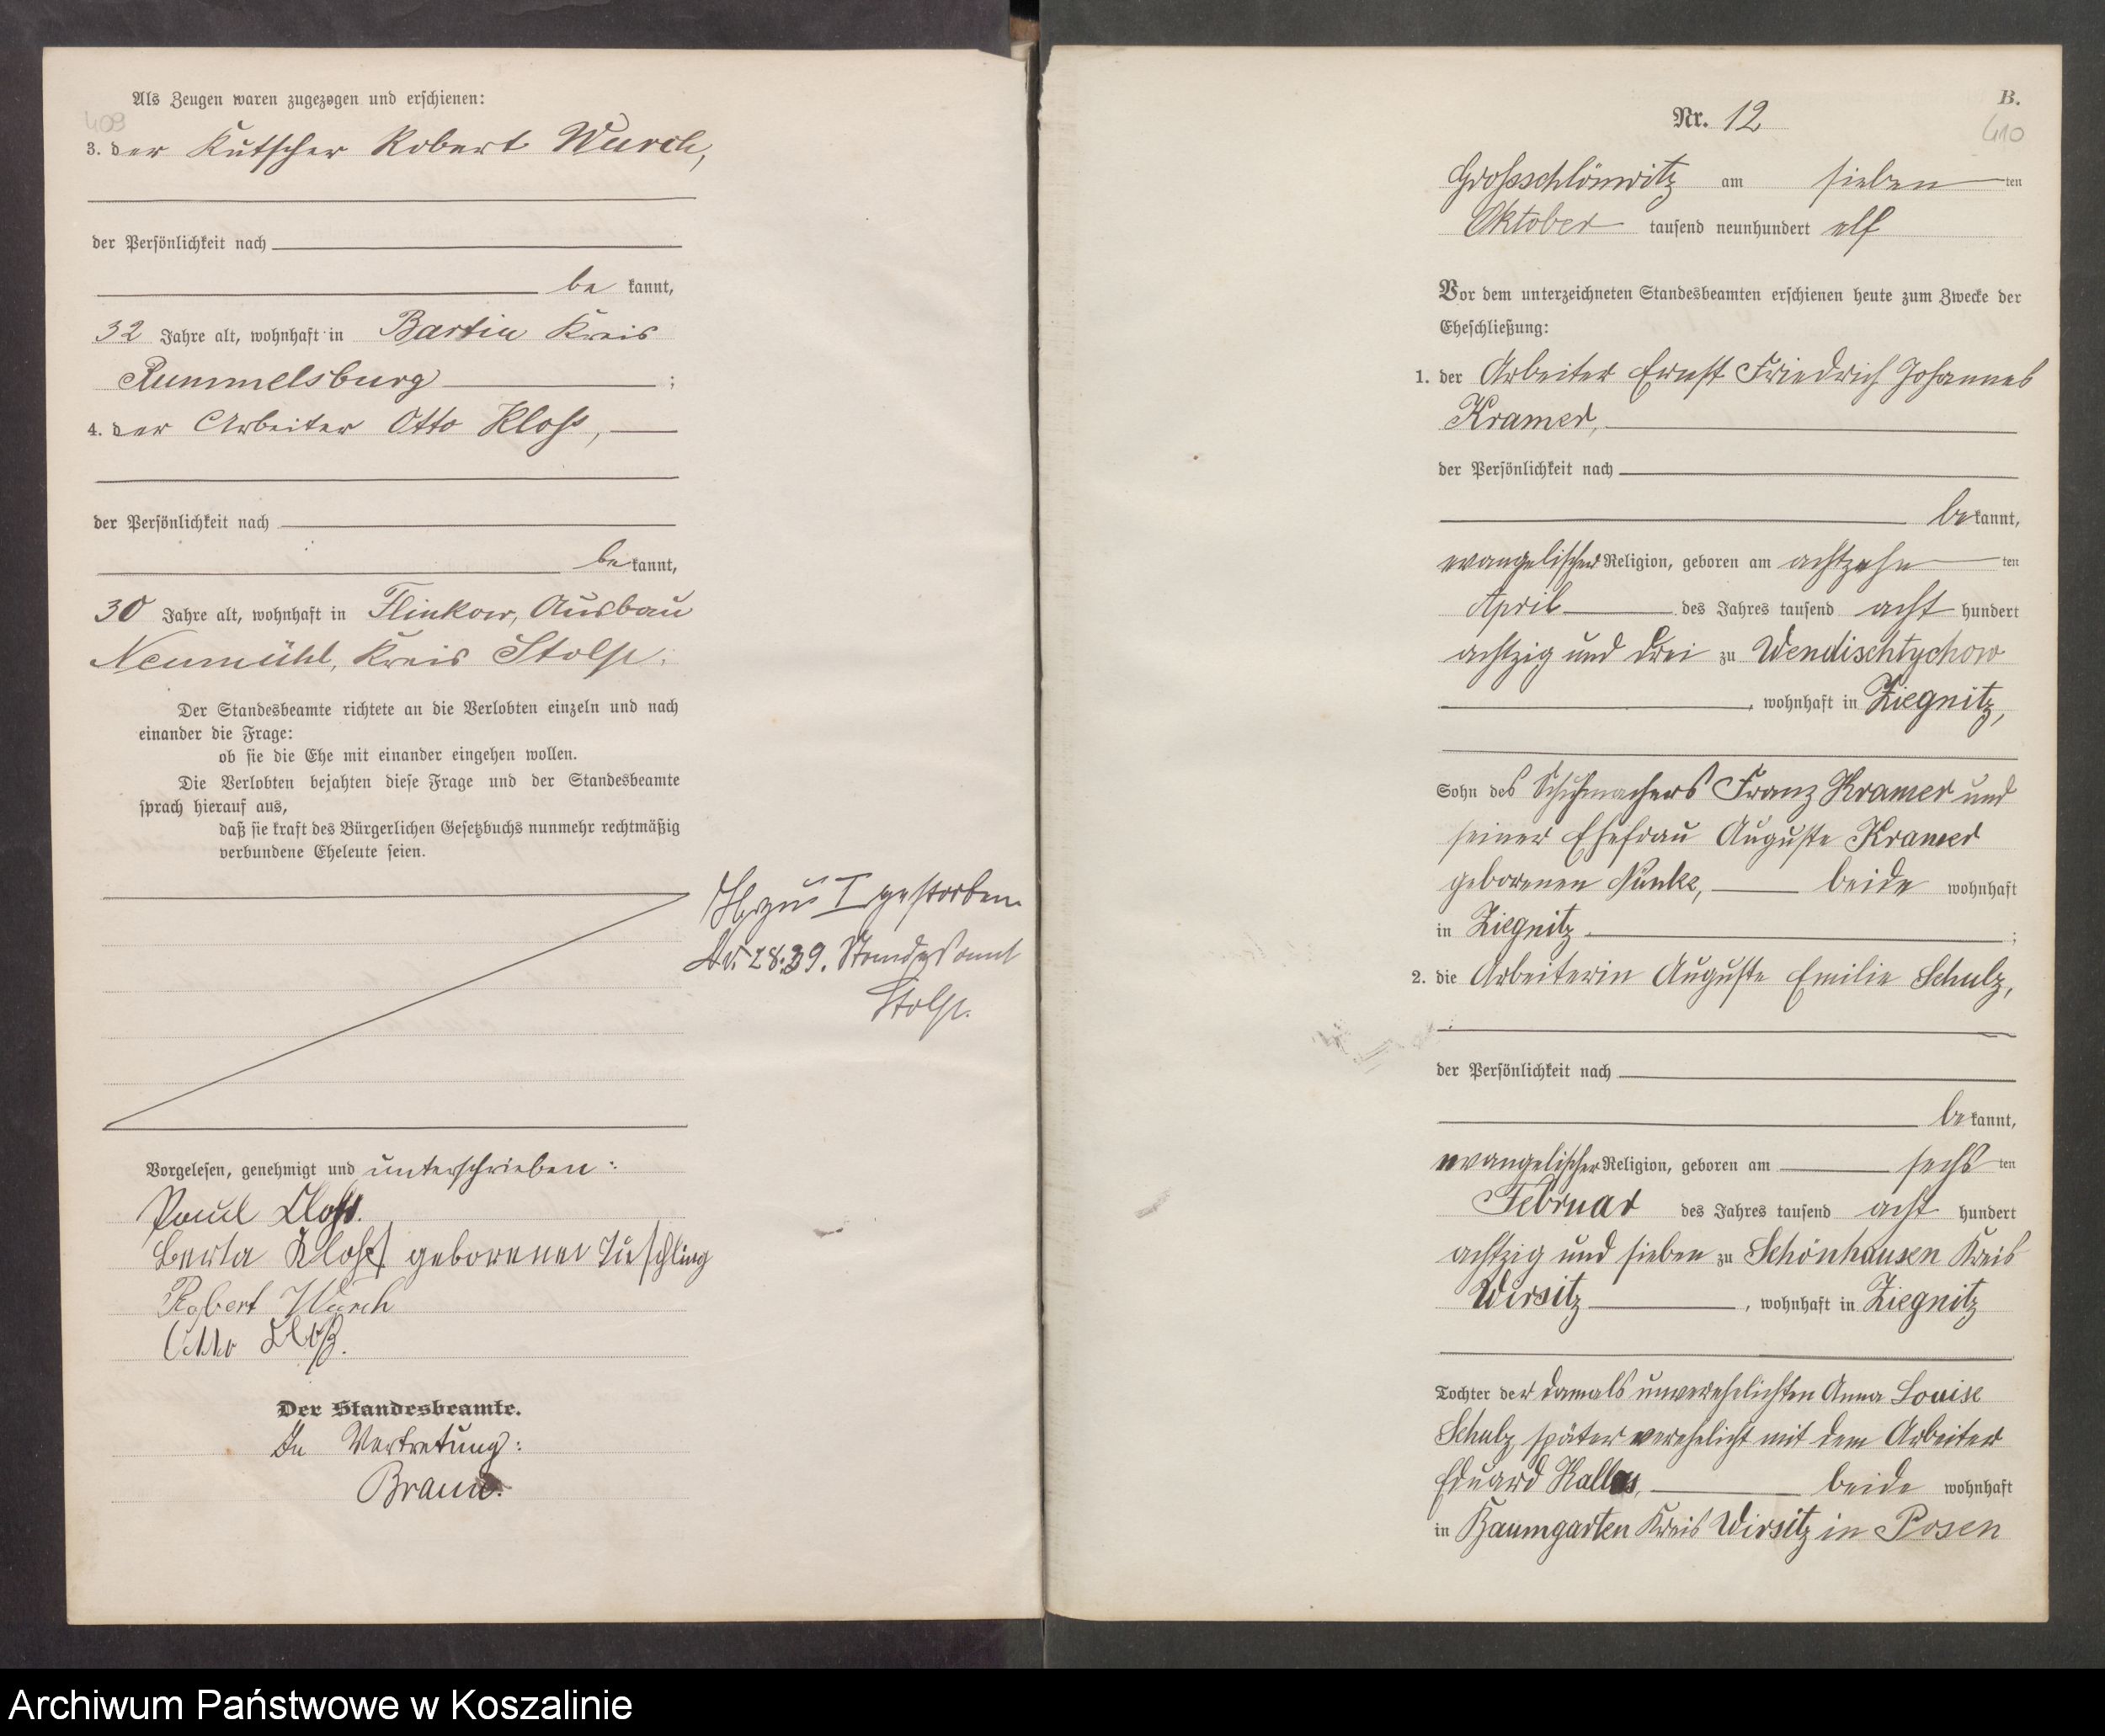 409
Als Zeugen waren zugezogen und erschienen:
3. der Kutscher Robert Wurch,
der Persönlichkeit nach
be kannt,
32 Jahre alt, wohnhaft in Bartin Kreis
Rummelsburg ;
4. der Arbeiter Otto Kloß,
der Persönlichkeit nach
be kannt,
30 Jahre alt, wohnhaft in Flinkow, Ausbau
Neumühl, Kreis Stolp.
Der Standesbeamte richtete an die Verlobten einzeln und nach
einander die Frage:
ob sie die Ehe mit einander eingehen wollen.
Die Verlobten bejahten diese Frage und der Standesbeamte
sprach hierauf aus,
daß sie kraft des Bürgerlichen Gesetzbuchs nunmehr rechtmäßig
verbundene Eheleute seien.
I gestorben
28.39. Standesamt
Stolp.
Vorgelesen, genehmigt und unterschrieben:
Paul Kloß.
Berta Kloß geborener Tuschling
Robert Wurch
Otto Kloß.
Der Standesbeamte.
In Vertretung:
Braun.
B.
410
Nr. 12
Großschlönwitz am sieben ten
Oktober tausend neunhundert elf
Vor dem unterzeichneten Standesbeamten erschienen heute zum Zwecke der
Eheschließung:
1. der Arbeiter Ernst Friedrich Johannes
Kramer,
der Persönlichkeit nach
be kannt,
evangelischer Religion, geboren am achtzehn ten
April des Jahres tausend acht hundert
achtzig und drei zu Wendischtychow
, wohnhaft in Ziegnitz,
Sohn des Schuhmachers Franz Kramer und
seiner Ehefrau Auguste Kramer
geborenen Künke, beide wohnhaft
in Ziegnitz ;
2. die Arbeiterin Auguste Emilie Schulz,
der Persönlichkeit nach
be kannt,
evangelischer Religion, geboren am sechs ten
Februar des Jahres tausend acht hundert
achtzig und sieben zu Schönhausen Kreis
Wirsitz , wohnhaft in Ziegnitz
Tochter der damals unverehelichten Anna Louise
Schulz, später verehelicht mit dem Arbeiter
Eduard beide wohnhaft
in Baumgarten Kreis Wirsitz in Posen
Archiwum Państwowe w Koszalinie